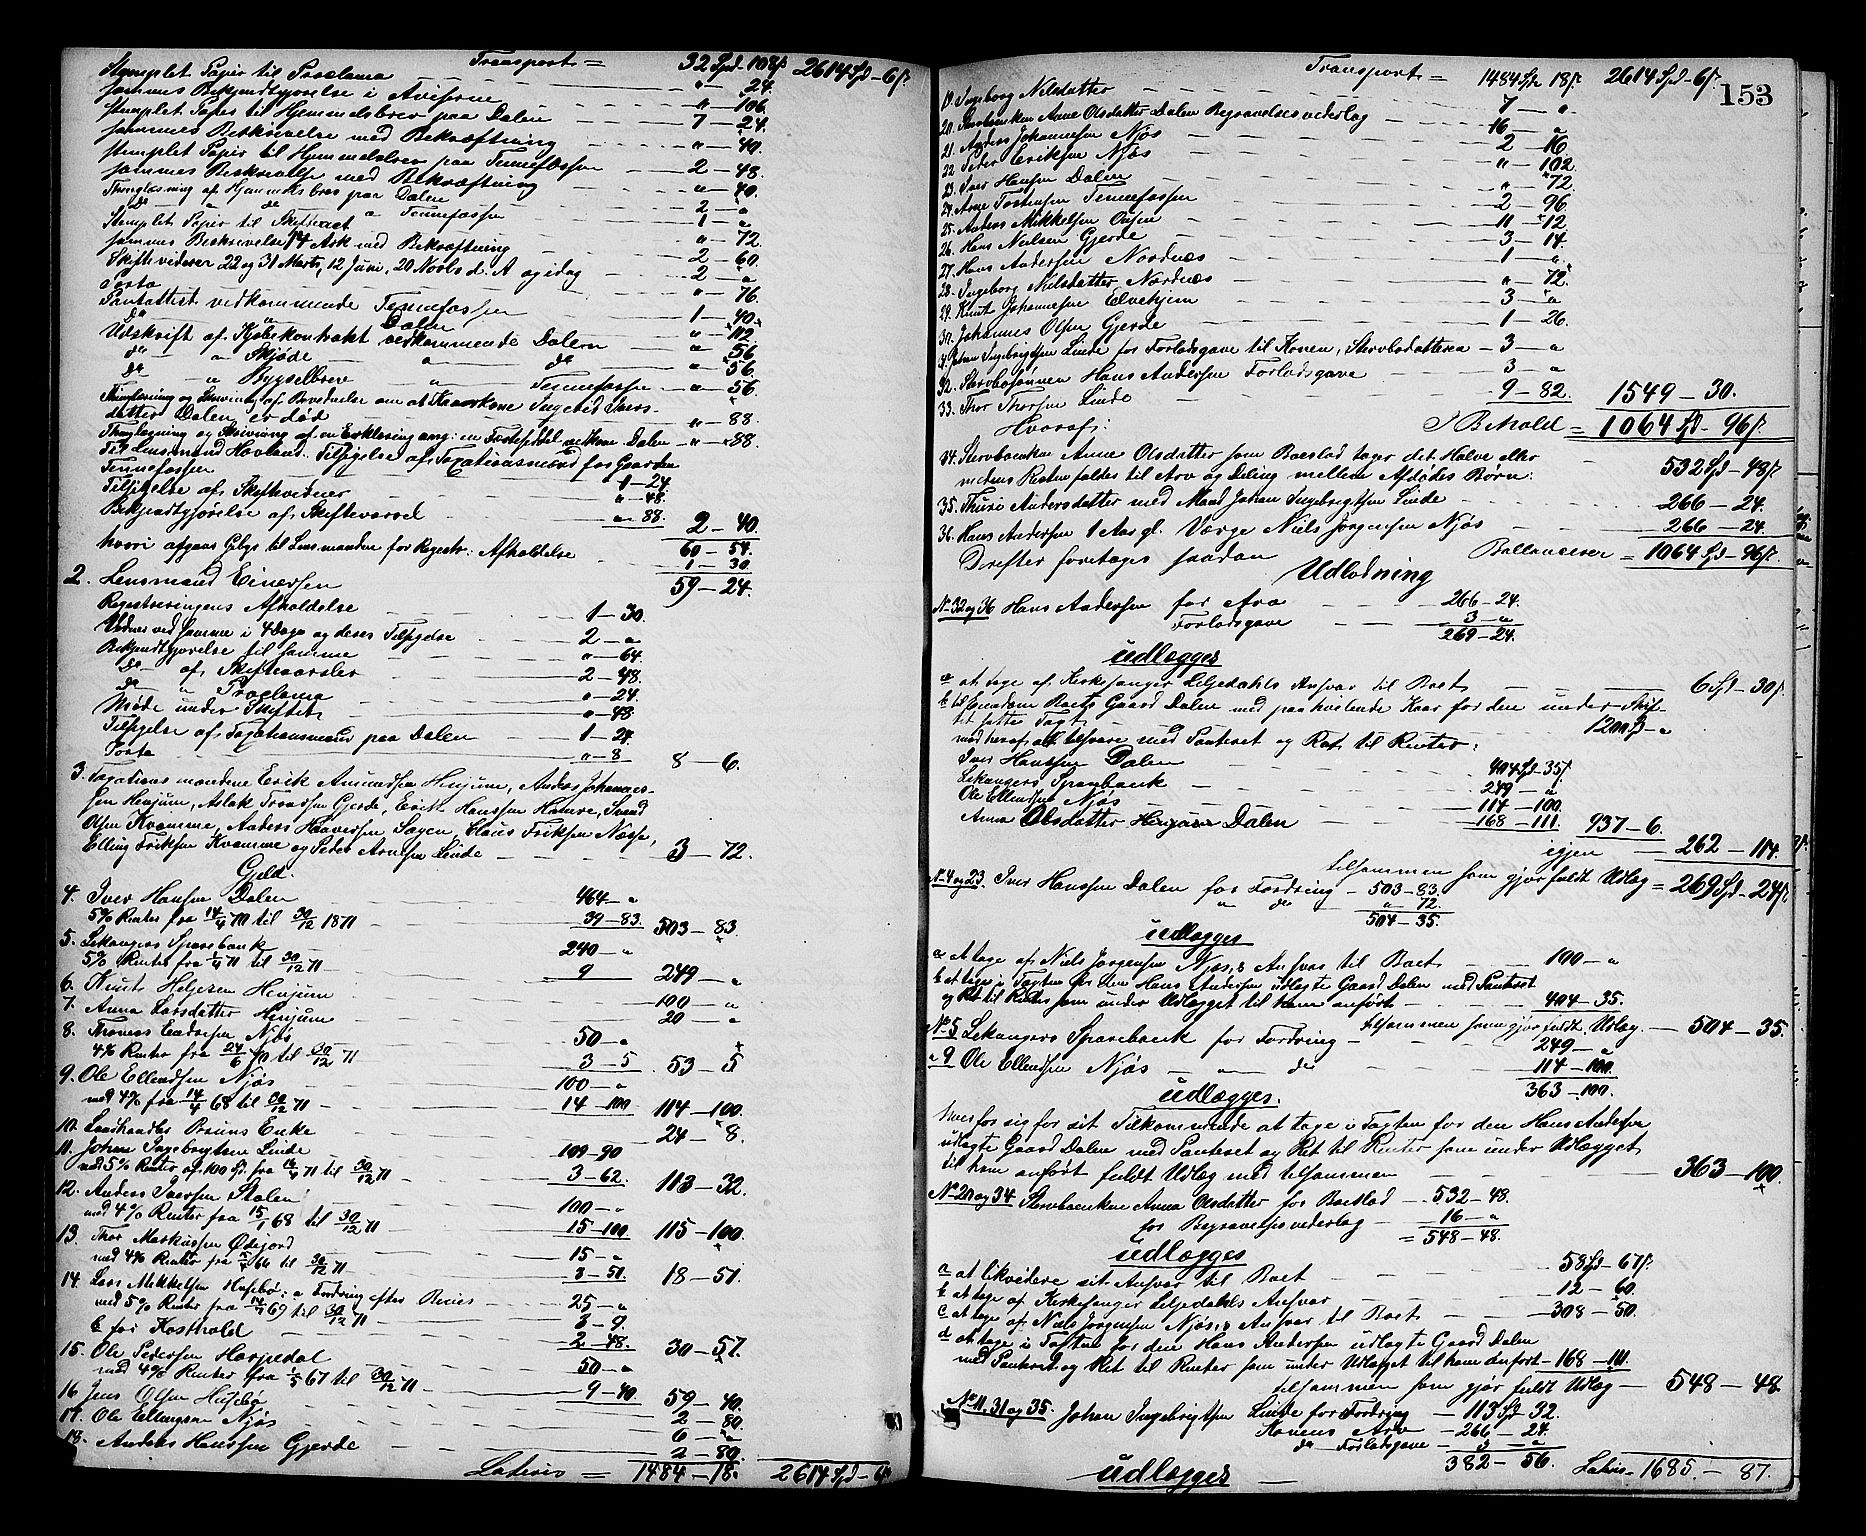 Transport = 32 Spd - 108 ß 2614 Spd - 6 ß
Stemplet Papir til Proclama „ - 24.
sammes Bekjendtgjørelse i Aviserne „ - 106.
stemplet Papir til Hjemmelsbrev paa Dalen 7 - 24.
sammes Beskrivelse med Bekræftning „ - 40.
stemplet Papir til Hjemmelsbrev paa Tennefossen 2 - 48.
sammes Beskrivelse med Bekræftning „ - 40.
Thinglæsning af Hjemmelsbrev paa Dalen 2 - „
do „ do „ Tennefossen 1 - „
Stemplet Papir til Skifteact „ - 72.
sammes Beskrivelse 14 Ark med Bekræftning 2 - 60.
Skiftevidner 22 og 31 Marts, 12 Juni, 20 Novbr d. A og idag 2 - „
Porto „ - 76.
Pantattest vedkommende Tennefossen 1 - 40.
do „ Dalen „ - 112
Udskrift af Kjøbekontrakt vedkommende Dalen „ - 56
do - „ Skjøde „ do „ - 56.
do „ Bygselbrev „ Tennefossen „ - 56
Thinglæsning og Skrivning af Bevidnelse om at Kaarkone Ingebid Ivers-
datter Dalen er død „ - 88.
Thinglæsning og Skrivning af en Erklæring ang: en Fæsteseddel vedkom. Dalen „ - 88.
Til Lensmand Hovland. Tilsigelse af Taxationsmænd for Gaarden
Tennefossen 1 - 24.
Tilsigelse af Skiftevidner „ - 48.
Bekjendtgjørelse af Skiftevarsel „ - 88. 2 - 40
60 - 54.
hvori afgaar Gebyr til Lensmanden for Registr: Afholdelse 1 - 30
2. Lensmand Einersen 59 - 24.
Registreringens Afholdelse 1 - 30.
Vidner ved samme i 4 Dage og deres Tilsigelse 2 - „
Bekjendtgjørelse til samme „ - 64.
do af Skiftevarsler 2 - 48.
do „ Proclama „ - 24.
Møde under Skiftet „ - 48
Tilsigelse af Taxationsmænd paa Dalen 1 - 24.
Porto „ - 8 8 - 6.
3. Taxationsmændene Erik Amundsen Henjum, Anders Johannes-
sen Henjum, Aslak Trondsen Gjerde, Erik Hanssen Hamre, Sjund
Olsen Kvamme, Anders Haaversen Sagen, Claus Eriksen Næsse,
Elling Eriksen Kvamme og Peder Arnesen Linde 3 - 72.
Gjeld.
4. Iver Hansen Dalen 464 - „
5% Renter fra 14/4 70 til 30/12 1871 39 - 83. 503 - 83.
5. Lekangers Sparebank 240 - „
5% Renter fra 1/4 71 til 30/12 71 9 249 - „
6. Knut Helgesen Henjum 100 - „
7. Anna Larsdatter Henjum 20 - „
8. Thomas Endresen Njøs 50 - „
4% Renter fra 24/6 70 til 30/12 71 3 - 5 53 - 5
9. Ole Ellendsen Njøs 100 - „
med 4% fra 14/4 68 til 30/12 71 14 - 100 114 - 100.
10. Landhandler Bruuns Enke 24 - 8.
11. Johan Ingebrigtsen Linde 109 - 90
med 5% Renter af 100 Sp. fra 14/4 71 til 30/12 71 3 - 62. 113 - 32.
12. Anders Iversen Stalen 100 - „
med 4% Renter fra 15/1 68 til 30/12 71 15 - 100 115 - 100.
13. Thor Markussen Ødejord 15 - „
med 4% Renter fra 66 til 30/12 71 3 - 51. 18 - 51.
14. Lars Mikkelsen Husebø: a Fordring efter Bevis 25 - „
med 5% Renter fra 14/7 69 til 30/12 71 3 - 9.
b for Kosthold 2 - 48. 30 - 57.
15. Ole Pedersen Harpedal 50 - „
med 4% Renter fra 1/5 67 til 30/12 71 9 - 40. 59 - 40.
16 Jens Olsen Husebø 2 - 80.
17. Ole Ellingsen Njøs 6 - „
18. Anders Hanssen Gjerde 2 - 80.
Lateris = 1484 - 18. 2614 Spd - 6
153
Transport = 1484 Sp 18 ß. 2614 Spd - 6 ß.
19. Ingeborg Nilsdatter 7 - „
20. Stervboenken Anne Olsdatter Dalen Begravelsesvederlag 16 - „
21. Anders Johannesen Njøs 2 - 16
22 Peder Eriksen Njøs „ - 102.
23. Iver Hansen Dalen „ - 72.
24. Arne Torstensen Tennefossen 2 - 96
25. Anders Mikkelsen Onsen 11 - 12
26. Hans Nielsen Gjerde 3 - 14.
27. Hans Andersen Nordnæs 1 - „
28. Ingeborg Nielsdatter, Nordnæs „ - 72.
29. Knut Johannesen Elvehjem 3 - „
30. Johannes Olsen Gjerde 1 - 26.
31. Johan Ingebrigtsen Linde for Forlodsgave til Konen, Stervbodatteren 3 - „
32. Stervbosønnen Hans Andersen Forlodsgave 3 - „
33. Thor Thorsen Linde 9 - 82. 1549 - 30.
Hvoraf: I Behold = 1064 Spd - 96 ß.
34. Stervboenken Anne Olsdatter som Boeslod tager det Halve eller 532 Spd - 48 ß
medens Resten falder til Arv og Deling mellem Afdødes Børn:
35. Thuri Andersdatter med Mand Johan Ingebrigtsen Linde 266 - 24.
36. Hans Andersen 1 Aar gl. Værge Niels Jørgensen Njøs 266 - 24.
Derefter foretages saadan Ballancerer = 1064 Spd - 96 ß.
Udlodning
No 32 og 36 Hans Andersen for Arv 266 - 24.
Forlodsgave 3 - „
269 - 24.
udlægges
a at tage af Kirkesanger Liljedahls Ansvar til Boet 6 Spd - 30 ß.
b til Eiendom Boets Gaard Dalen med paahvilende Kaar for den under Skif-
tet satte Taxt 1200 Sp - „
mod heraf at tilsvare med Panteret og Ret til Renter:
Iver Hanssen Dalen 404 Spd 35 ß.
Lekangers Sparebank 249 - „
Ole Ellendsen Njøs 114 - 100.
Anna Olsdatter Henjum Dalen 168 - 111. 937 - 6.
igjen 262 - 114.
tilsammen som gjør fuldt Udlæg = 269 Spd - 24 ß
No 4 og 23. Iver Hanssen Dalen for Fordring 503 - 83.
„ do „ 72.
504 - 35.
udlægges
a at tage af Niels Jørgensen Njøs's Ansvar til Boet 100 - „
b at tage i Taxten for den Hans Andersen udlagte Gaard Dalen med Panteret
og Ret til Renter som under Udlægget til ham anført 404 - 35.
tilsammen som gjør fuldt Udlæg 504 - 35.
No 5 Lekangers Sparebank for Fordring 249 - „
„ 9 Ole Ellendsen Njøs „ do 114 - 100.
363 - 100.
udlægges.
hver for sig for sit Tilkommende at tage i Taxten for den Hans Andersen
udlagte Gaard Dalen med Panteret og Ret til Renter som under Udlægget
til ham anført fuldt Udlæg med tilsammen 363 - 100.
No 20 og 34. Stervboenken Anna Olsdatter for Boeslod 532 - 48.
for Begravelsesvederlag 16 - „
= 548 - 48.
udlægges
a at likvidere sit Ansvar til Boet 58 Spd - 67 ß.
b at tage af Kirkesanger Liljedahls Ansvar 12 - 60.
c at tage af Niels Jørgensen Njøs's Ansvar til Boet 308 - 50.
d at tage i Taxten for den Hans Andersen udlagte Gaard Dalen
med Panteret og Ret til Renter som under Udlægget til ham anført - 168 - 111.
tilsammen som gjør fuldt Udlæg 548 - 48
No 11, 31 og 35. Johan Ingebrigtsen Linde for Fordring 113 Spd 32.
Konens Arv 266 - 24.
do Forlodsgave 3 - „
382 - 56.
udlægges Lateris - 1685. - 87.